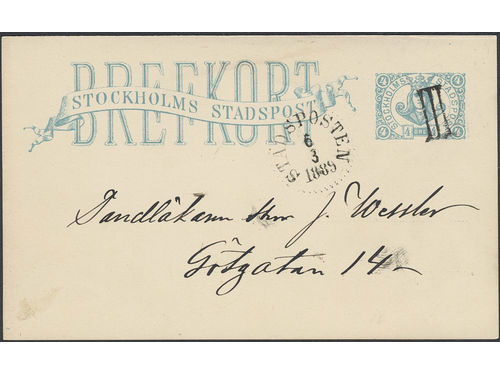 BREFKORT
STOCKHOLMS STADSPOST
4 4
STOCKHOLMS STADSPOST
4
4 4
III
STADSPOSTEN
6
3
1889
Tandläkaren Herr J. Wessler
Götgatan 14